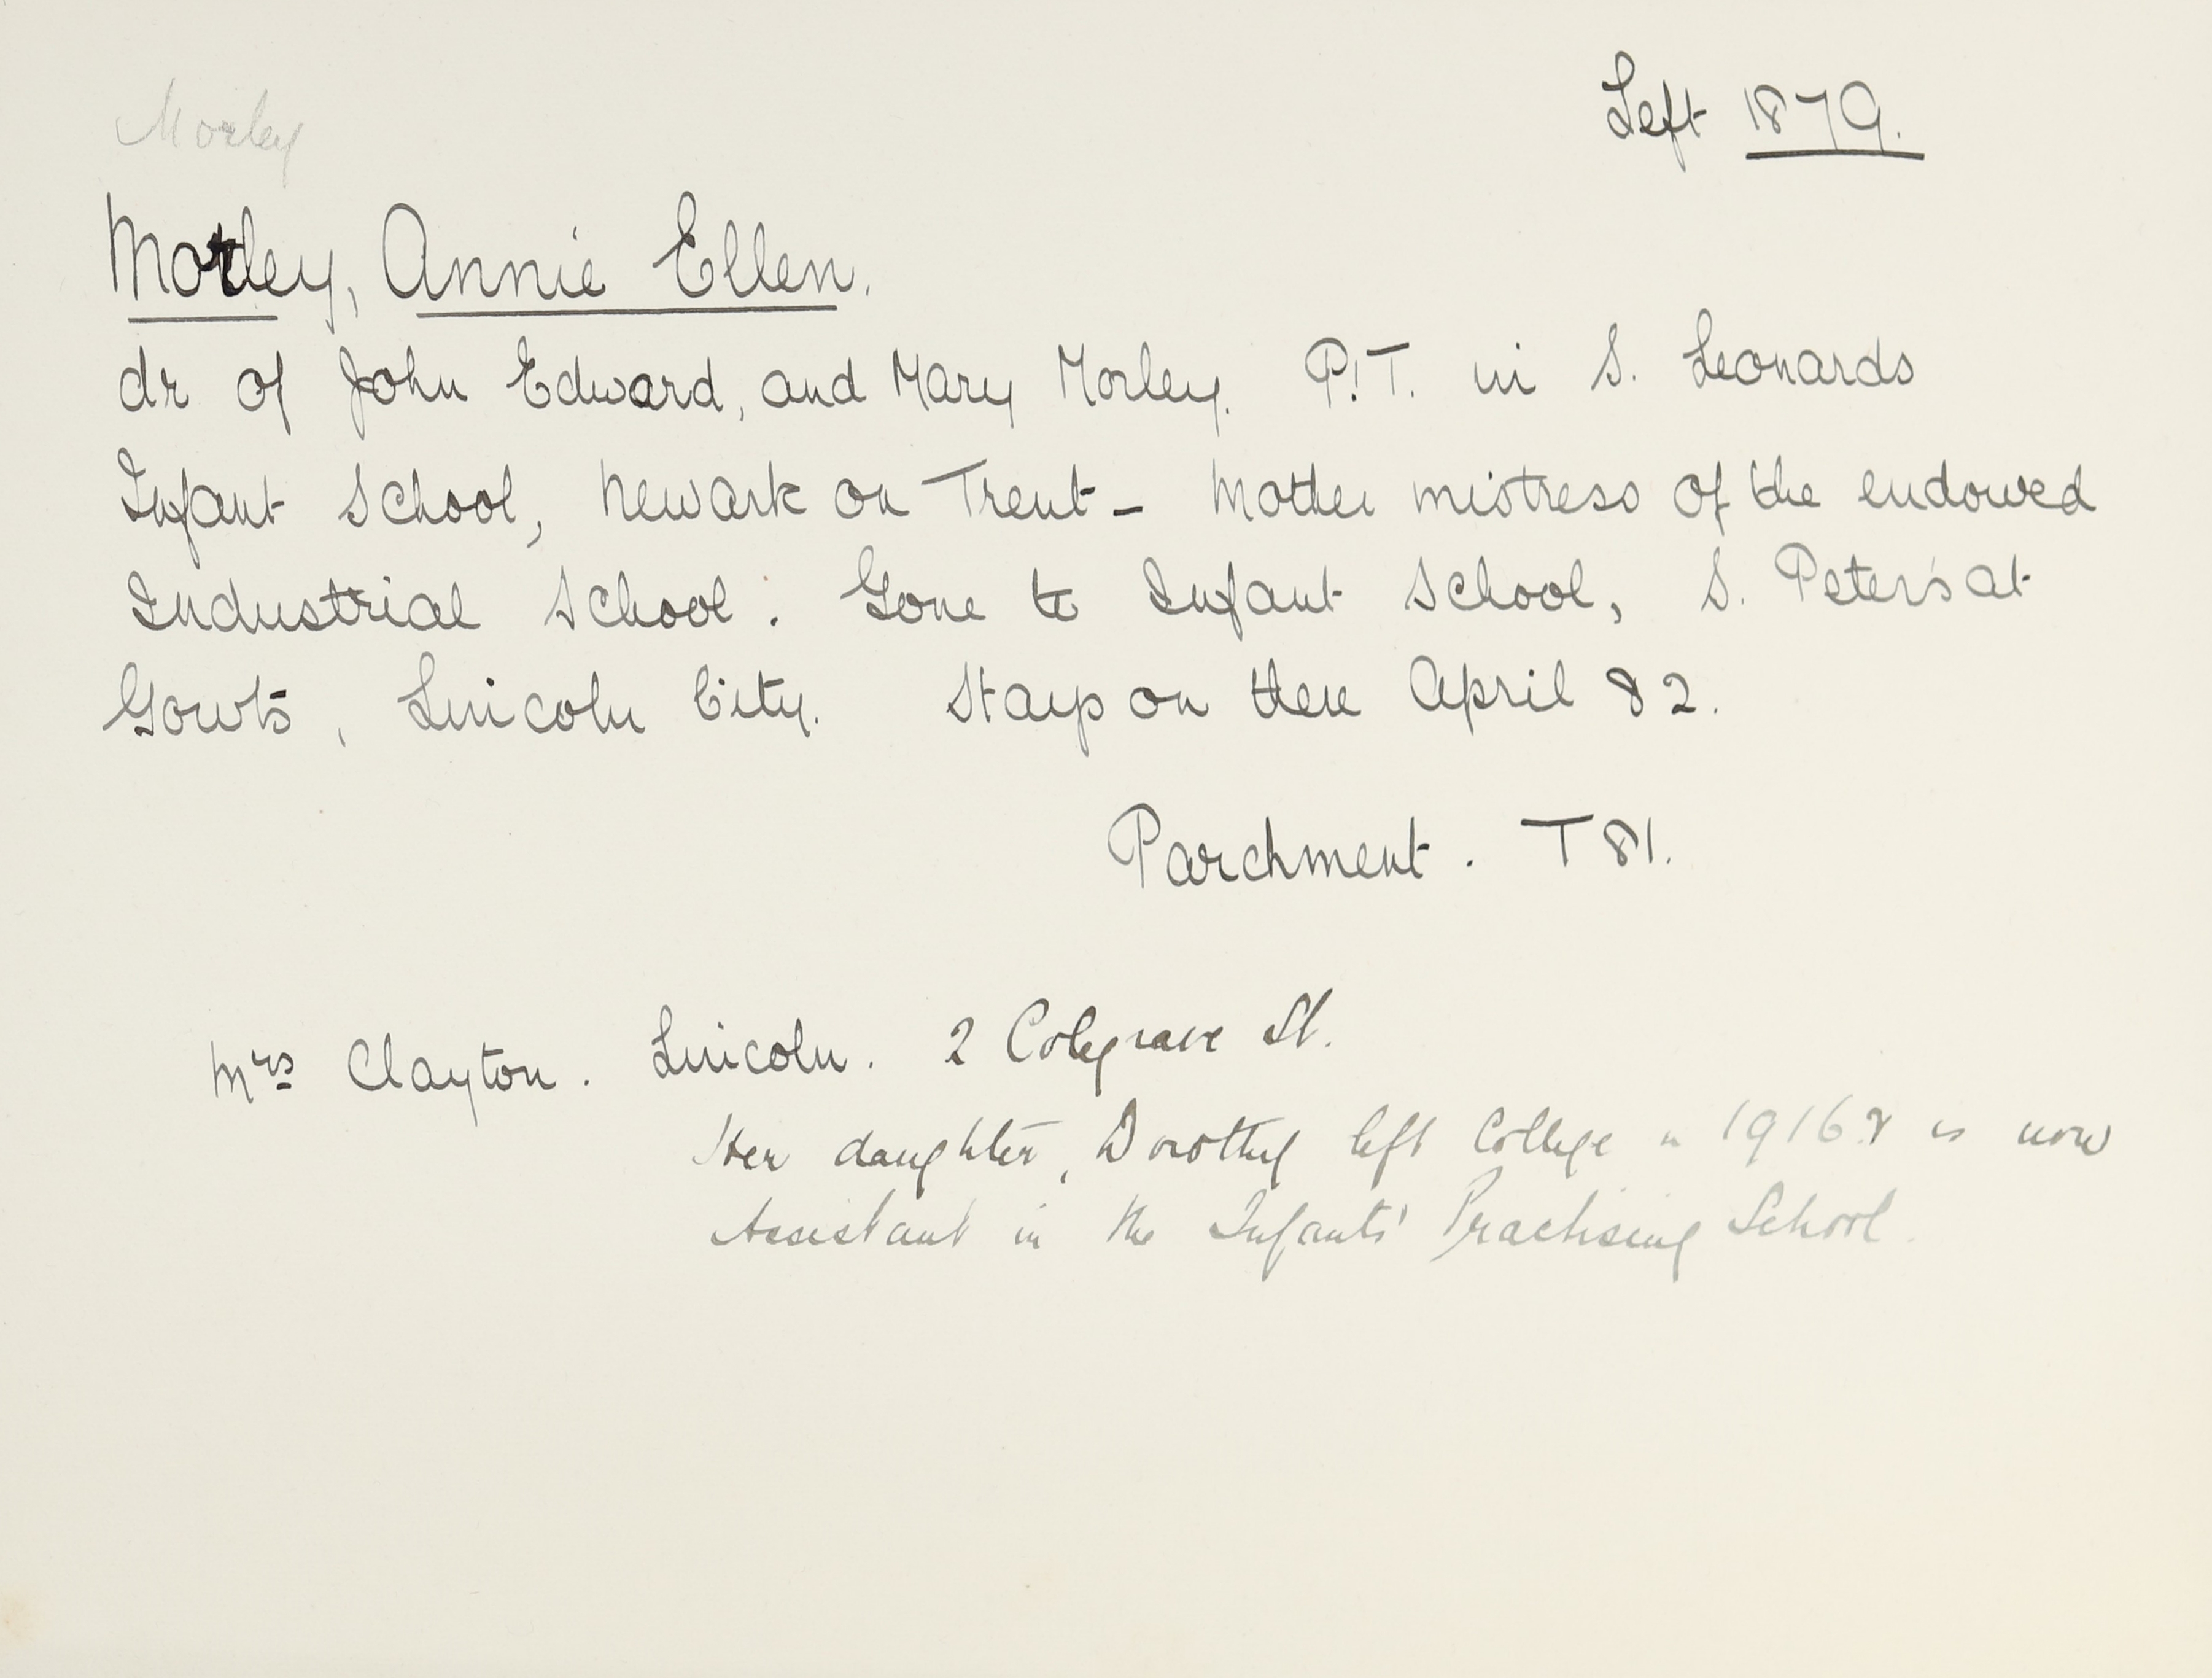 Morley
Left 1879.
Morley, Annie Ellen.
dr of John Edward, and Mary Morley. P.T. in S. Leonards
Infant School, Newark on Trent - Mother mistress of the endowed
Industrial School. Gone to Infant School, S. Peter's at
Gowts, Lincoln City. Stays on there April 82.
Parchment. T 81.
Mrs Clayton. Lincoln. 2 Colegrave St.
Her daughter, Dorothy left College in 1916 & is now
Assistant in the Infants' Practising School.